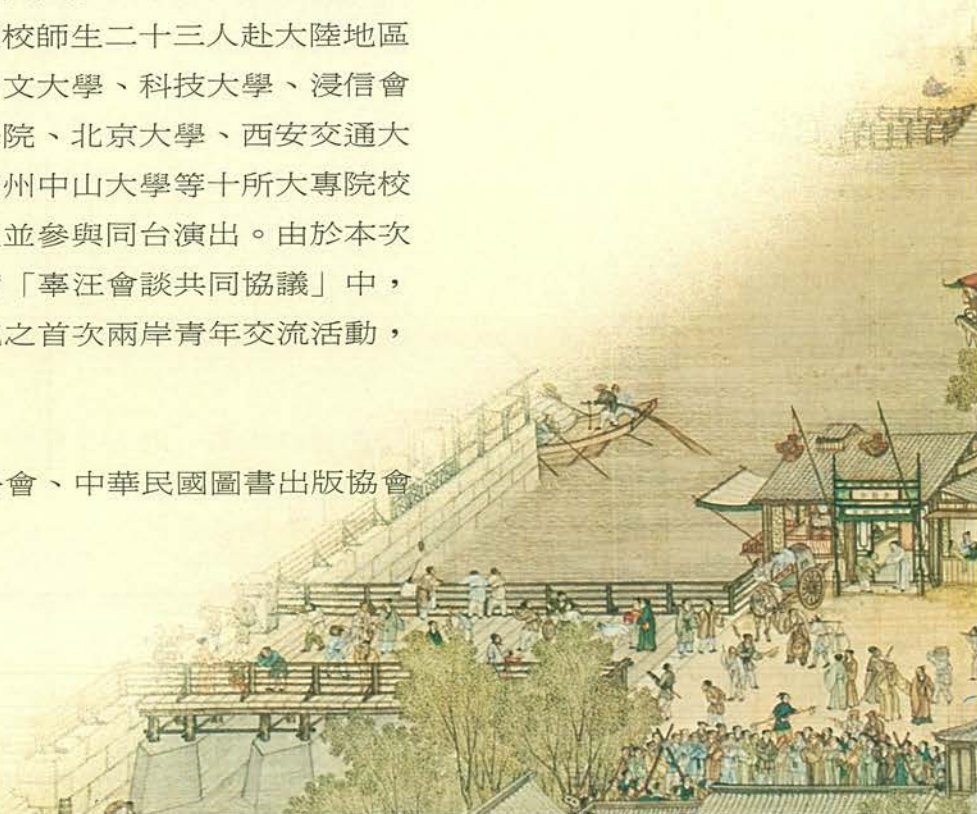 校師生二十三人赴大陸地區
文大學、科技大學、浸信會
院、北京大學、西安交通大
州中山大學等十所大專院校
並參與同台演出。由於本次
「辜汪會談共同協議」中，
之首次兩岸青年交流活動，
會、中華民國圖書出版協會